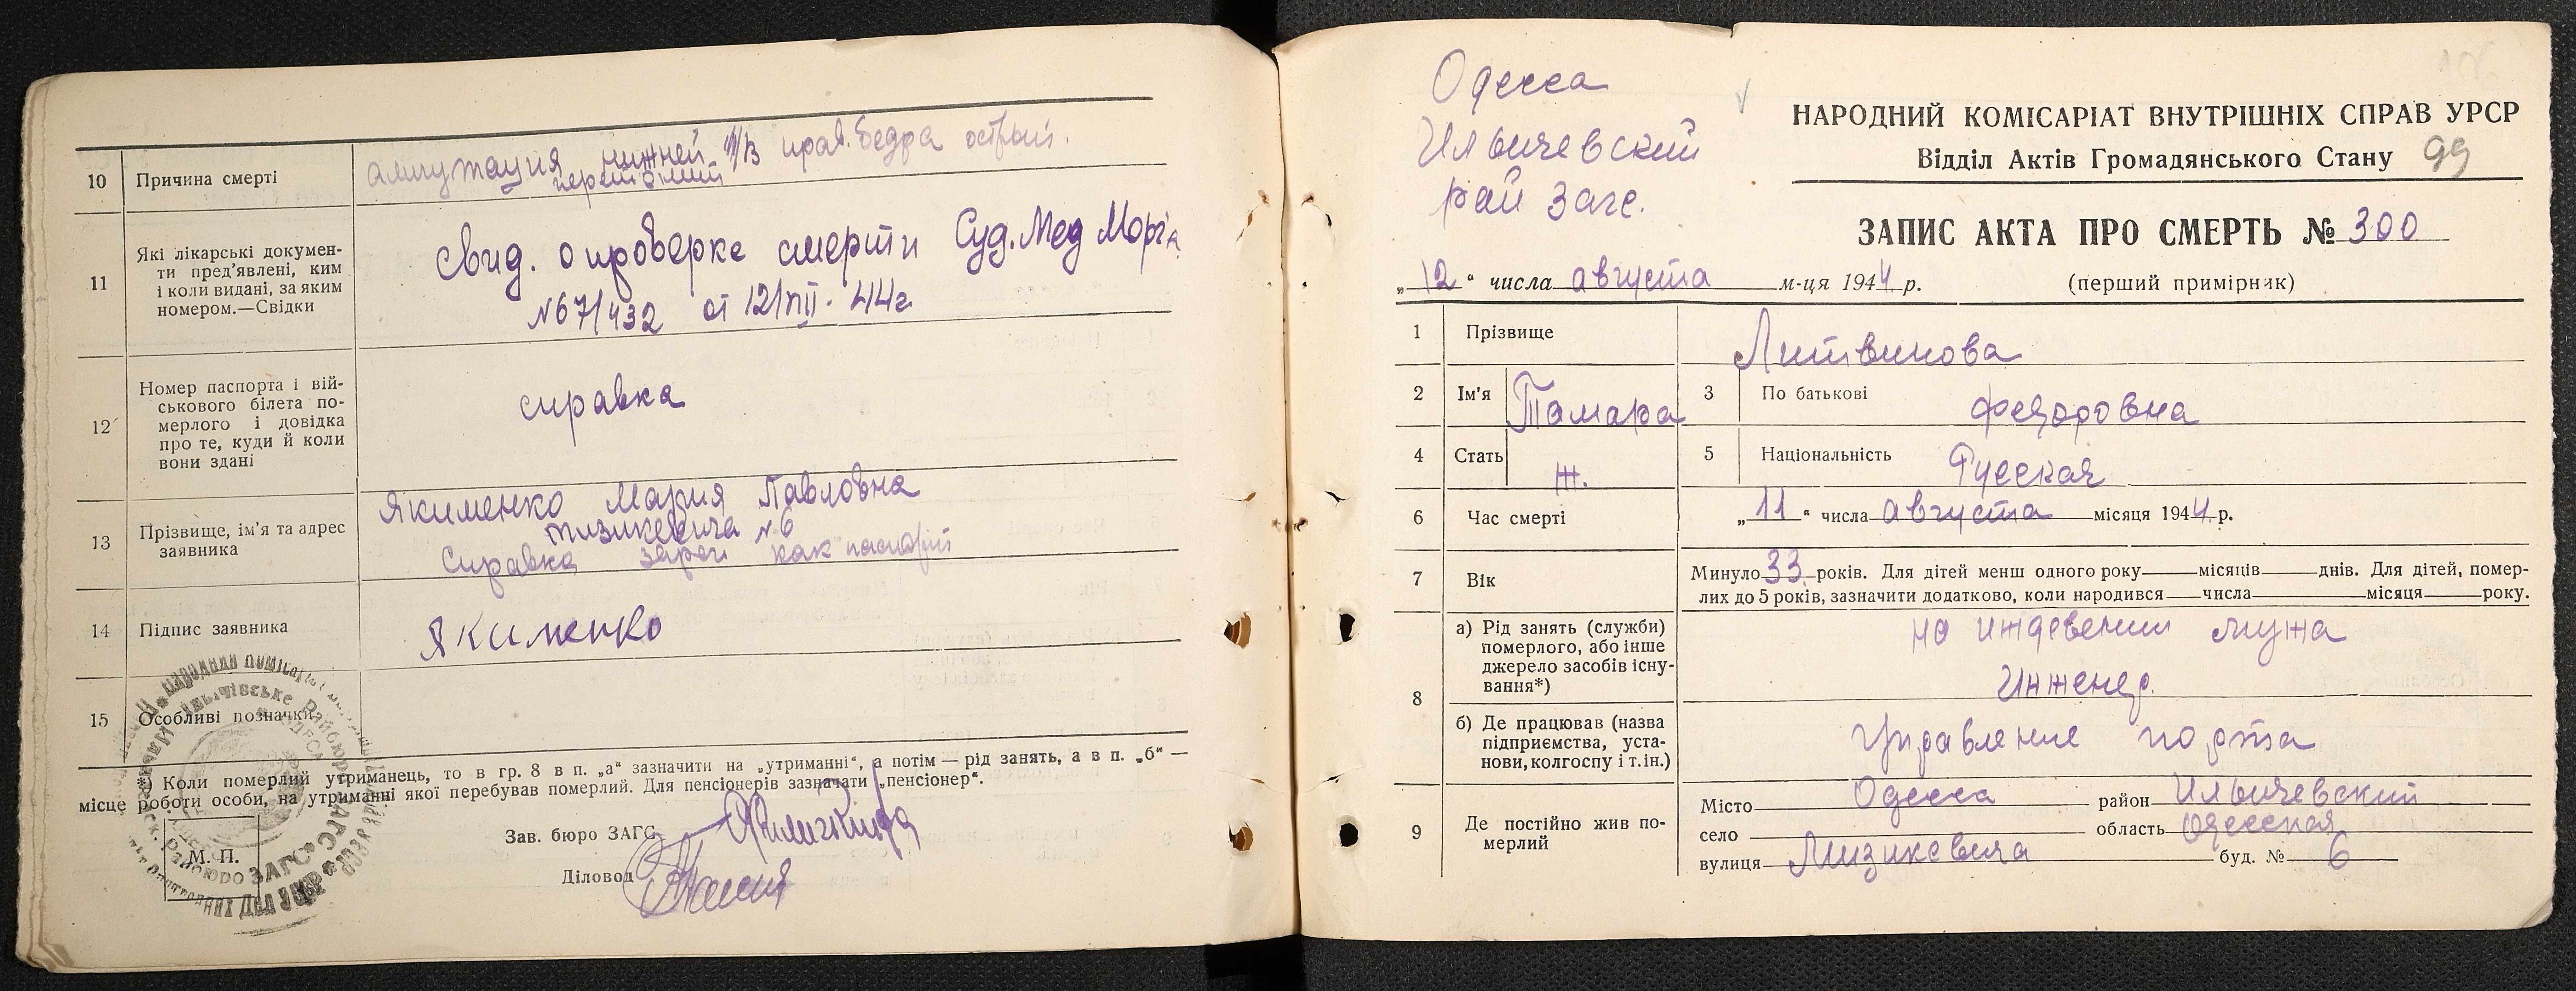 10 Причина смерті ампутация нижней н/з прав. бедра острый
перитонит
11 Які лікарські докумен-
ти пред'явлені, ким
і коли видані, за яким
номером.—Свідки
Свид. о проверке смерти Суд. Мед Морга
№67/432 от 12/VIII-44г
12 Номер паспорта і вій-
ськового білета по-
мерлого і довідка
про те, куди й коли
вони здані
справка
13 Прізвище, ім'я та адрес
заявника
Якименко Мария Павловна
Мизикевича №6
Справка как паспорт
14 Підпис заявника Якименко
15 Особливі позначки
*) Коли померлий утриманець, то в гр. 8 в п. „а“ зазначити на „утриманні“, а потім — рід занять, а в п. „б“ —
місце роботи особи, на утриманні якої перебував померлий. Для пенсіонерів зазначати „пенсіонер“.
Зав. бюро ЗАГС
Діловод
М. П.
Одесса
Ильичевский
рай Загс.
НАРОДНИЙ КОМІСАРІАТ ВНУТРІШНІХ СПРАВ УРСР
Відділ Актів Громадянського Стану 99
ЗАПИС АКТА ПРО СМЕРТЬ № 300
„12“ числа августа м-ця 1944 р. (перший примірник)
1 Прізвище Литвинова
2 Ім'я Тамара 3 По батькові Федоровна
4 Стать Ж. 5 Національність Русская
6 Час смерті „11“ числа августа місяця 1944 р.
7 Вік Минуло 33 років. Для дітей менш одного року — місяців — днів. Для дітей, помер-
лих до 5 років, зазначити додатково, коли народився — числа — місяця — року.
8 а) Рід занять (служби)
померлого, або інше
джерело засобів існу-
вання*)
на иждевении мужа
Инженер.
б) Де працював (назва
підприємства, уста-
нови, колгоспу і т.ін.)
Управление порта
9 Де постійно жив по-
мерлий
Місто Одесса район Ильичевский
село — область Одесская
вулиця Мизикевича буд. № 6